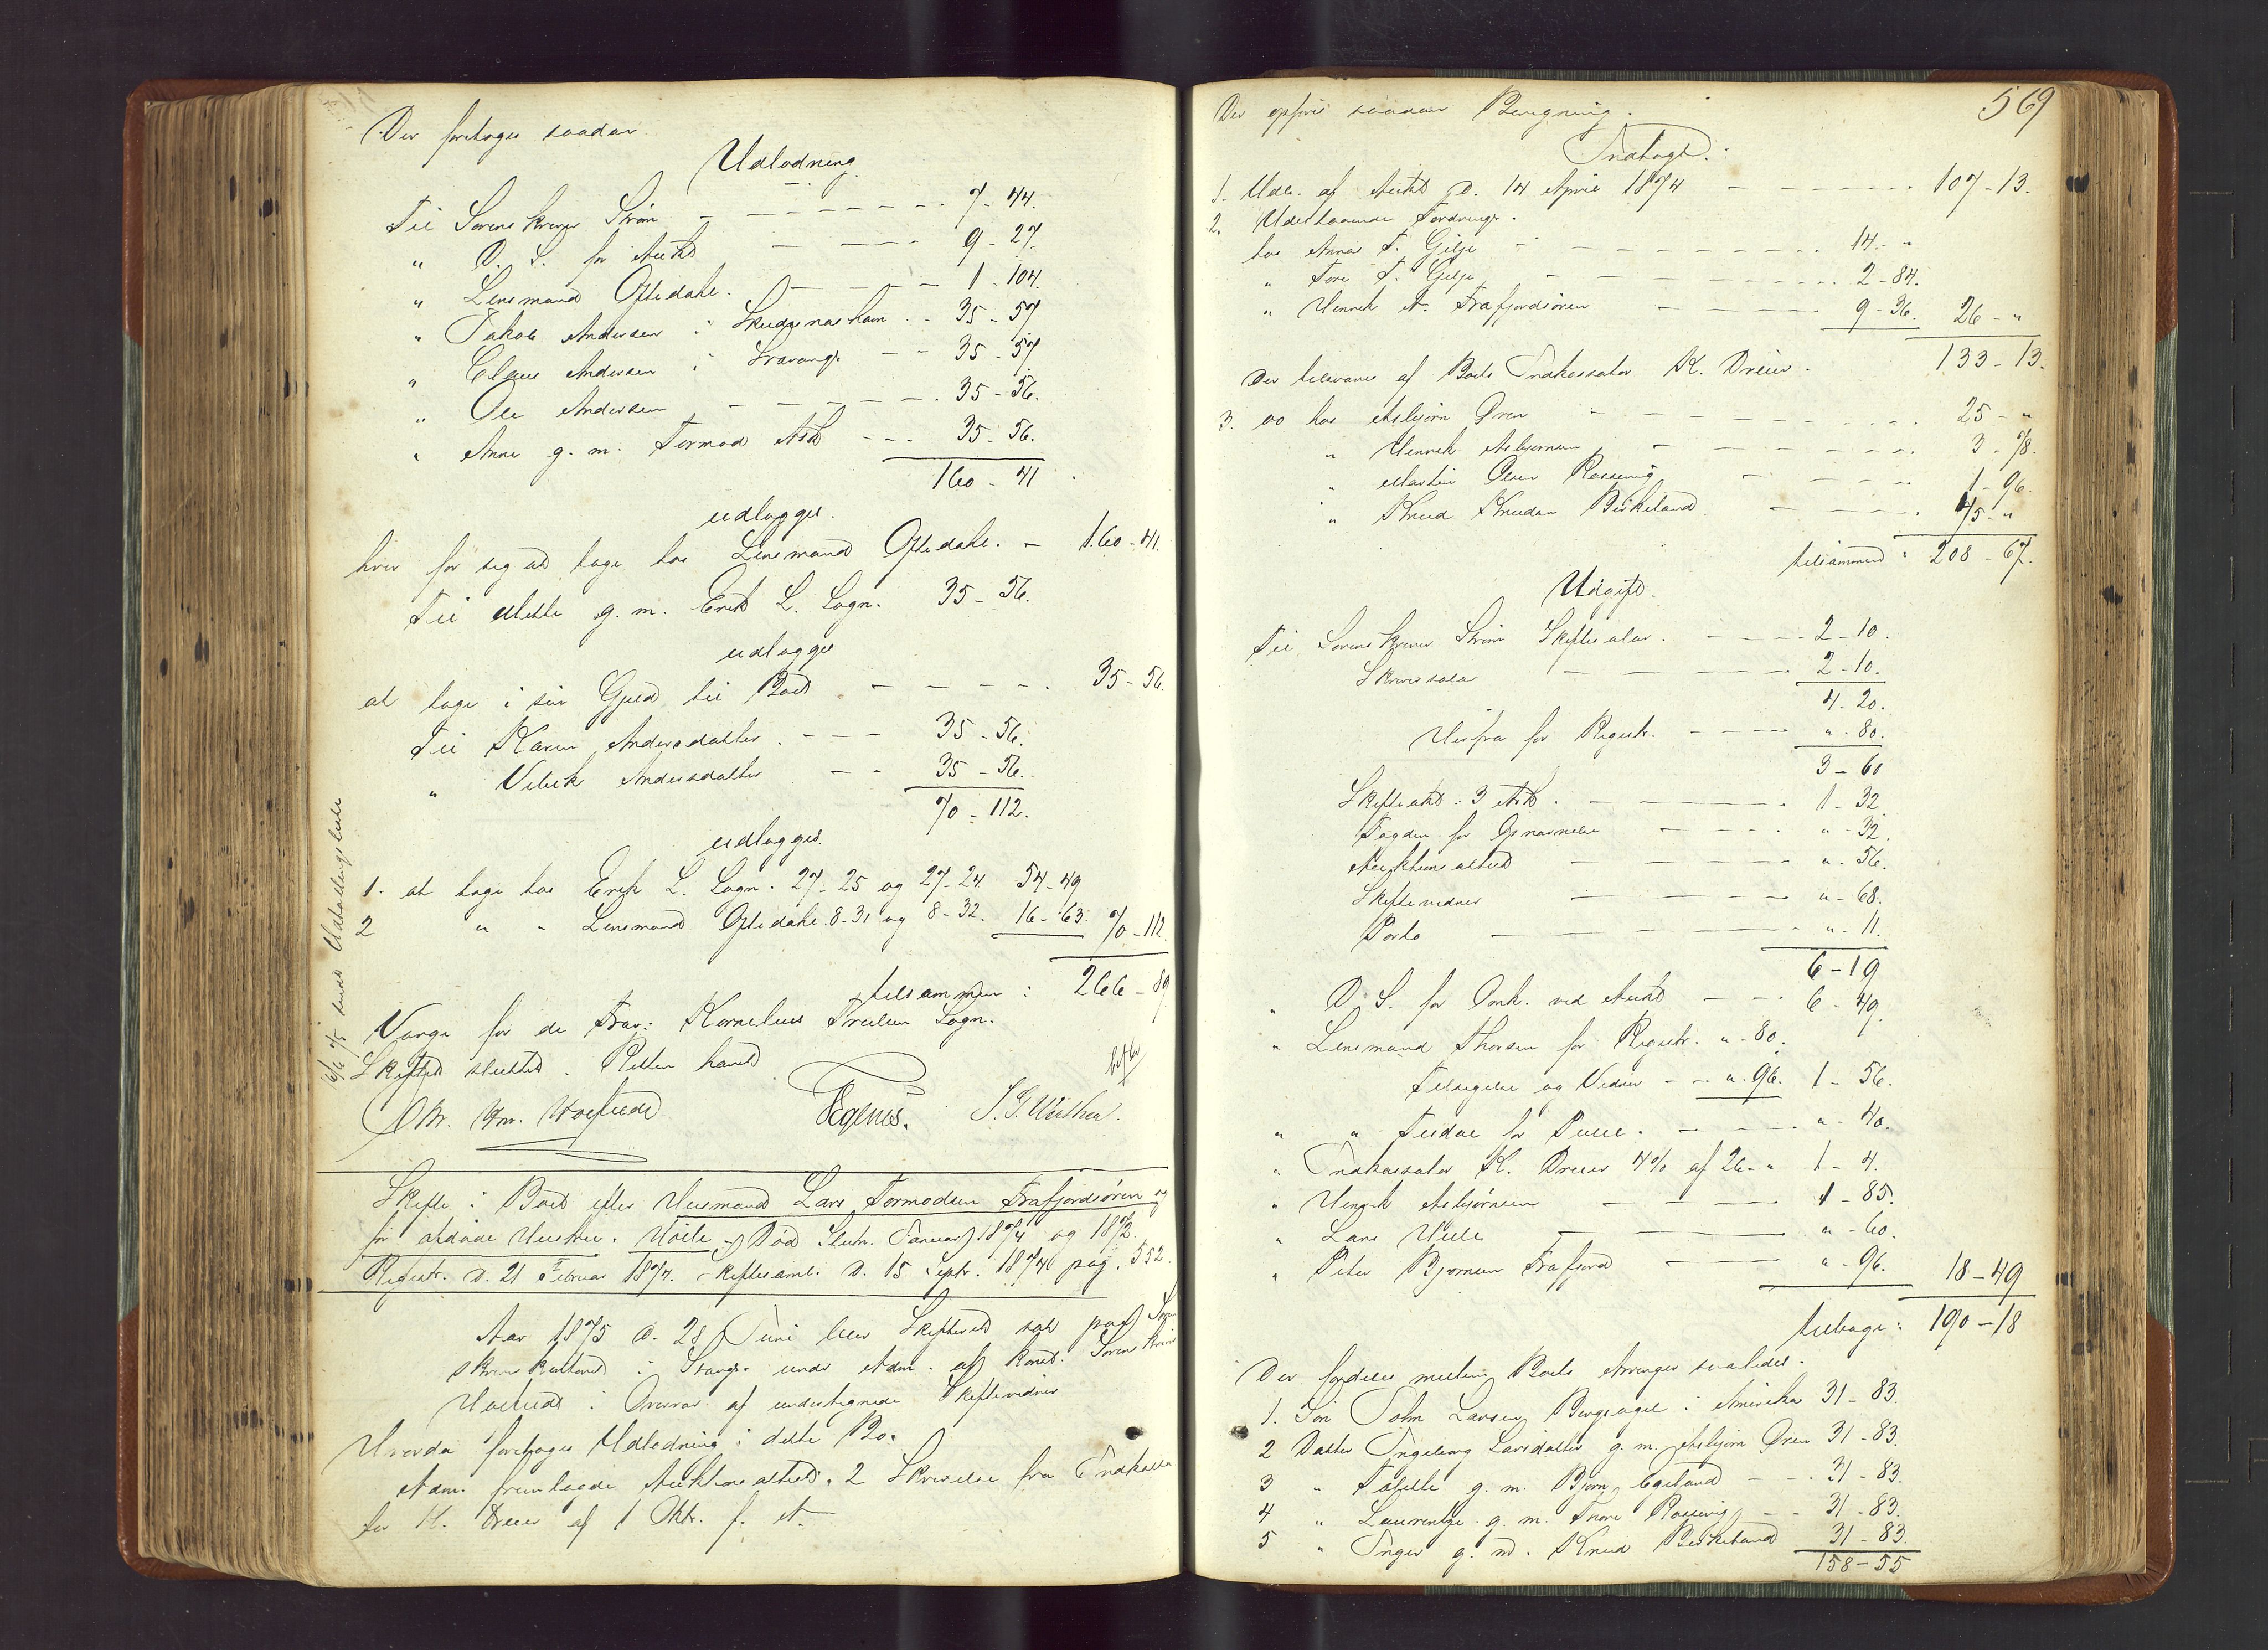 Der foretoges saadan
Udlodning.
Til Sorenskriver Strøm - - - 7 - 44.
" D. S. for Auktd - - - 9 - 27.
" Lensmand Oftedahl. - - - 1 - 104.
" Jakob Andersen i Skudesnæshavn - 35 - 57
" Claus Andersen i Stavangr - - 35 - 57
" Ole Andersen - - - 35 - 56.
" Anne g. m. Tormod - - - 35 - 56.
160 - 41
udlægges.
hver for sig at tage hos Lensmand Oftedahl. - 160 - 41.
Til Mette g. m. Erik L. Sogn. 35 - 56.
udlægges
at tage i sin Gjeld til Boet - - - 35 - 56.
Til Karen Andersdatter - - - 35 - 56.
" Vibeke Andersdatter - - 35 - 56.
70 - 112.
udlægges.
1. at tage hos Erik L. Sogn. 27 - 25 og 27 - 24 54 - 49
2 " " Lensmand Oftedahl. 8 - 31 og 8 - 32. 16 - 63. 70 - 112.
tilsammen : 266 - 89
Værge for de Frav: Kornelius Sogn.
Skiftet sluttet. Retten hævet
Egenes.
Skifte i Boet efter Husmand Lars Tormodsen Frafjordsøren og
før afdøde Hustru. Død Slutn. Januar 1874 og 1872.
Registr. d. 21 Februar 1874. Skiftesaml. d. 15 Septr. 1874 pag. 552
Aar 1875 d. 28 Juni blev Skifteret sat paa Soren
skriverkontoret i Stavgr. under Adm. af konst. Sorenskriver
i Overvær af undertegnede Skiftevidner
Hvorda foretoges Udlodning i dette Bo.
Adm. fremlagde Auktionsattest. 2 Skrivelse fra Indkassa
tor K. Dreier af 1 Oktr. f. A.
569
Der opføres saadan Beregning.
Indtægt:
1. Udb. af Auktd d. 14 April 1874 - - - 107 - 13.
2. Udestaaende Fordringr.
hos Annas T. Gilje - - - 14 - "
" Tore T. Gilje - - - 2 - 84.
" Henrik A. Frafjordsøren - - - 9 - 36. 26 - "
133 - 13.
Der tilsvares af Boets Indkassator K. Dreier.
3. do hos Asbjørn Øren - - - 25 - "
" Henrik Asbjørnsen - - - 3 - 78.
" Martin Olsen Røssevig - - - 1 - 96.
" Knud Knudsen Birkeland - - - 45 - "
tilsammen : 208 - 67.
Udgift.
Til Sorenskriver Strøm Skiftesalar. - - - 2 - 10.
Skriversalar - - - 2 - 10.
4 - 20.
Herfra for Registr. - - - " - 80.
3 - 60
Skifteaktd. 3 Ark. - - - 1 - 32
Fogden for Opnævnelse - - - " - 32.
Auktionsattest - - - " - 56.
Skiftevidner - - - " - 68.
Porto - - - " - 11.
6 - 19
" D. S. for Omk. ved Auktd - - 6 - 49.
" Lensmand Thorsen for Registr. " - 80.
Tilsigelse og Vidner - - " - 96. 1 - 56.
" " - - - " - 40.
" Indkassator K. Dreier 4% af 26 - " 1 - 4.
" Henrik Asbjørnsen - - - 1 - 85.
" Lars - - - " - 60.
" Peter Bjørnsen Frafjord - - - " - 96. 18 - 49
tilbage : 190 - 18
Der fordeles mellem Boets Arvinger saaledes.
1. Søn John Larsen Bergsagel i Amerika 31 - 83.
2 Datter Ingeborg Larsdatter g. m. Asbjørn Øren 31 - 83.
3 " g. m. Bjørn Egeland - - 31 - 83.
4 " Laurentze g. m. Tore Røssevig - - 31 - 83.
5 " Inger g. m. Knud Birkeland 31 - 83.
158 - 55